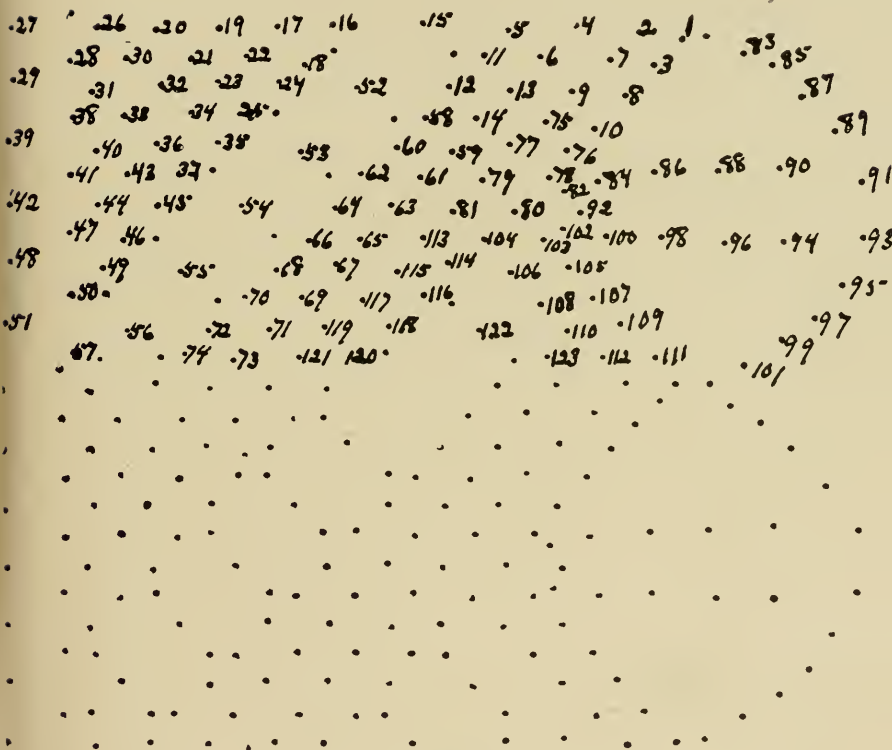 .27 .26 .20 .19 .17 .16 .15 .5 .4 2 1.
.28 .30 .21 .22 .18 .11 .6 .7 .3 .83 .85
.29 .31 .32 .23 .24 .52 .12 .13 .9 .8 .87
38 .33 .34 25. .58 .14 .75 .10 .89
.39 .40 .36 .35 .53 .60 .59 .77 .76
.41 .43 37. .62 .61 .79 .78 .82 .84 .86 .88 .90 .91
.42 .44 .45 .54 .64 .63 .81 .80 .92
.47 46. .66 .65 .113 .104 .103 .102 .100 .98 .96 .94 .93
.48 .49 .55 .68 .67 .115 .114 .106 .105
.50. .70 .69 .117 .116. .108 .107 .95
.51 .56 .72 .71 .119 .118 .122 .110 .109 .97
57. .74 .73 .121 120. .123 .112 .111 .99
.101